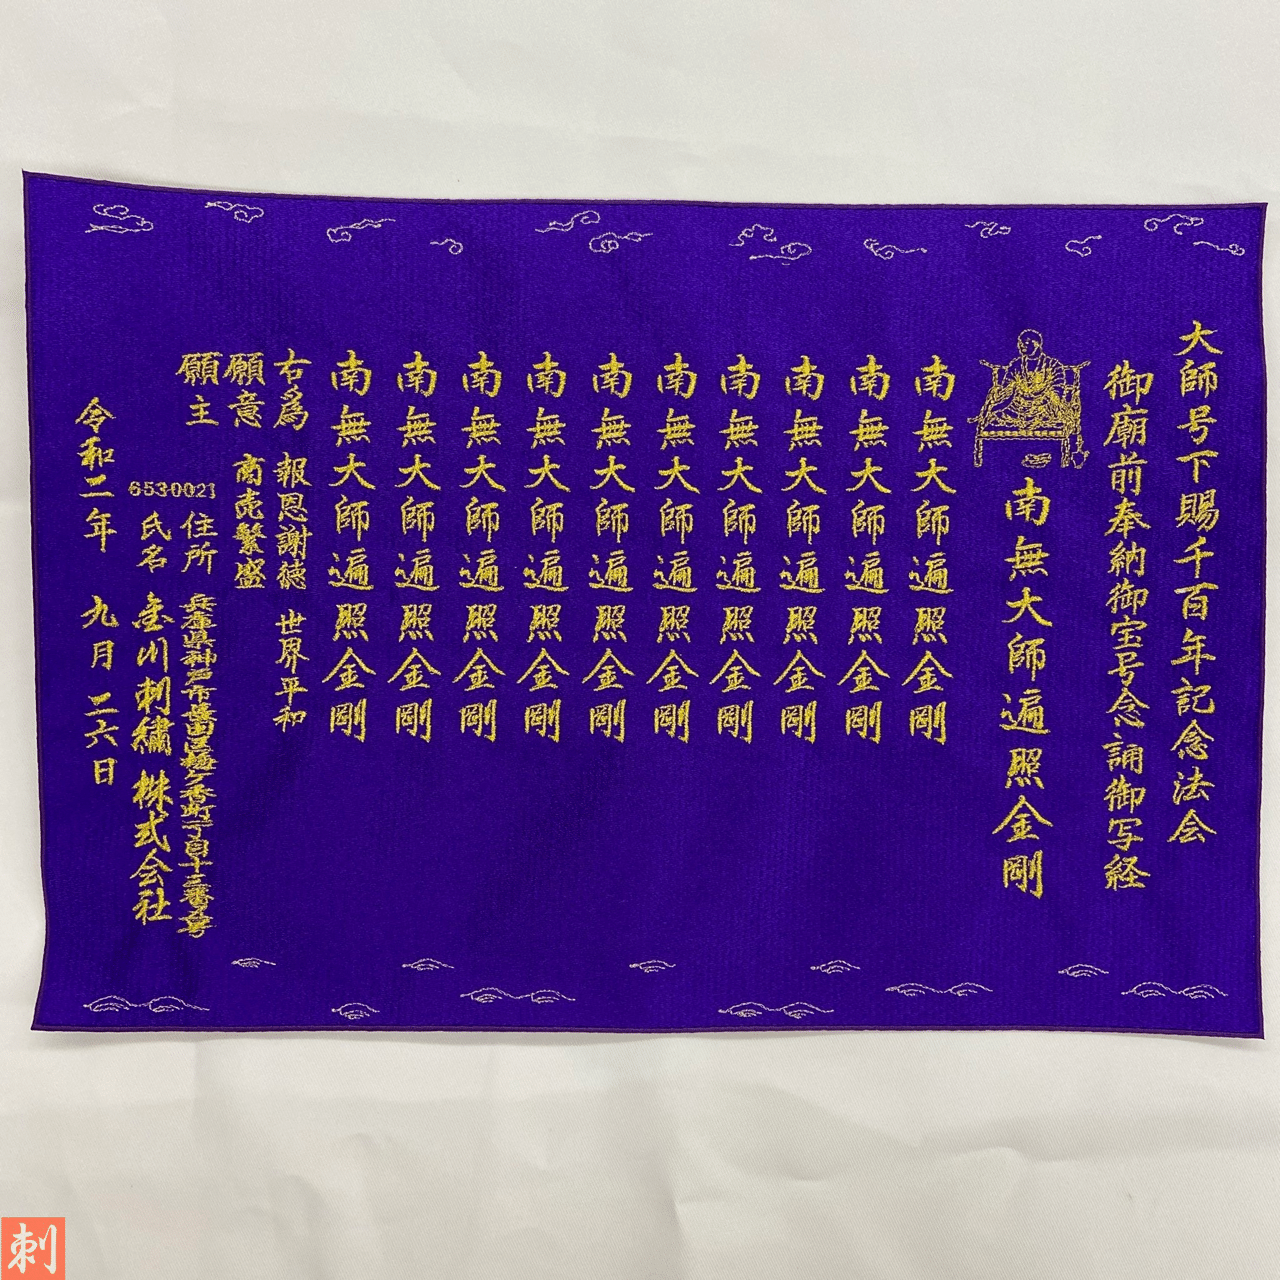 大師号下賜千百年記念法会
御廟前奉納御宝号念誦御写経
南無大師遍照金剛
南無大師遍照金剛
南無大師遍照金剛
南無大師遍照金剛
南無大師遍照金剛
南無大師遍照金剛
南無大師遍照金剛
南無大師遍照金剛
南無大師遍照金剛
南無大師遍照金剛
南無大師遍照金剛
右為 報恩謝徳 世界平和
願意 商売繁盛
願主 6530021 住所 兵庫県神戸市長田区梅ケ香町一丁目十三番
氏名 金川刺繍株式会社
令和二年 九月二六日
刺